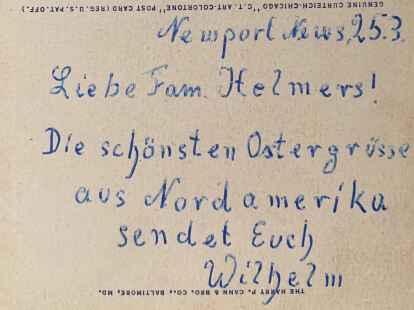 GENUINE CURTEICH-CHICAGO "C.T. ART-COLORTONE" POST CARD (REG. U.S. PAT. OFF.)
Newport News, 25.3.
Liebe Fam. Helmers!
Die schönsten Ostergrüsse
aus Nordamerika
sendet Euch
Wilhelm
THE HARRY P. CANN & BRO. CO., BALTIMORE, MD.